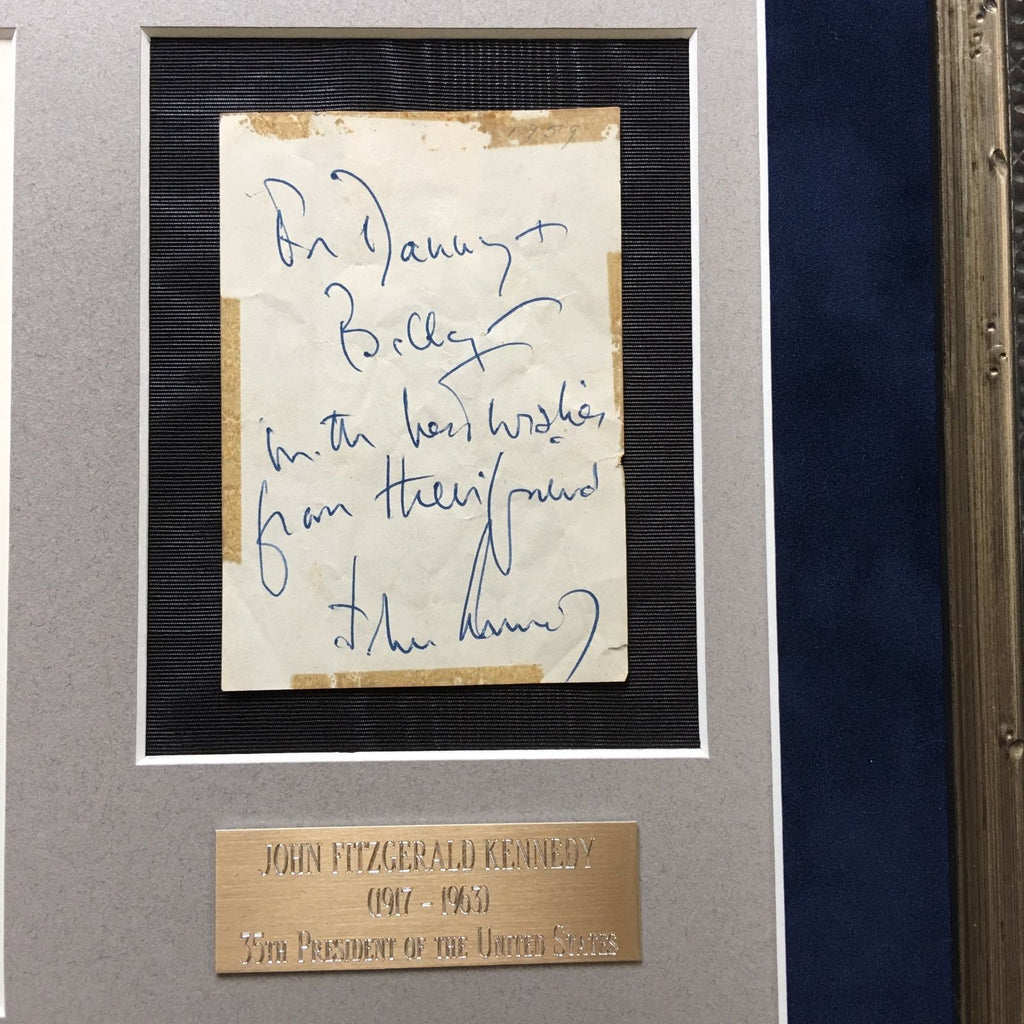 1959
For Danny +
Billy –
with best wishes
from their friend
John Kennedy
JOHN FITZGERALD KENNEDY
(1917 - 1963)
35TH PRESIDENT OF THE UNITED STATES